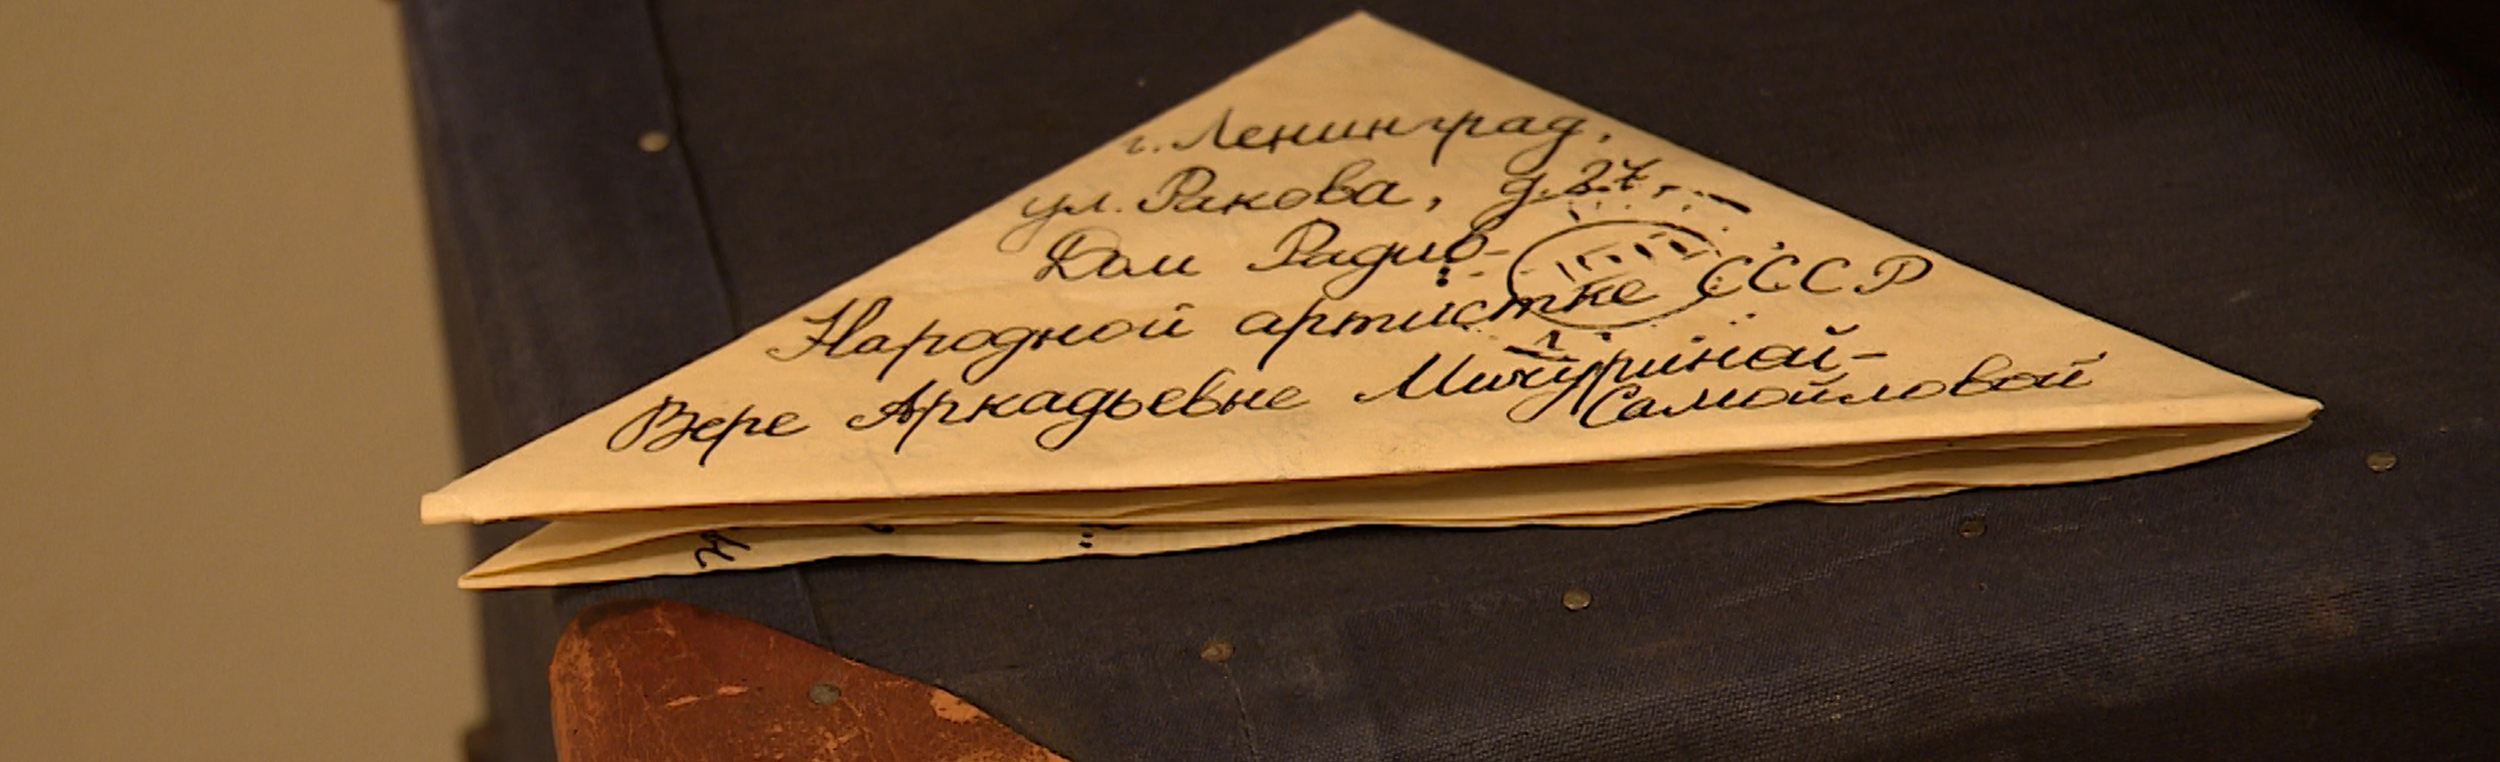 г. Ленинград,
ул. Ракова, д. 27,
Дом Радио-
Народной артистке СССР
Вере Аркадьевне Мичуриной-
Самойловой